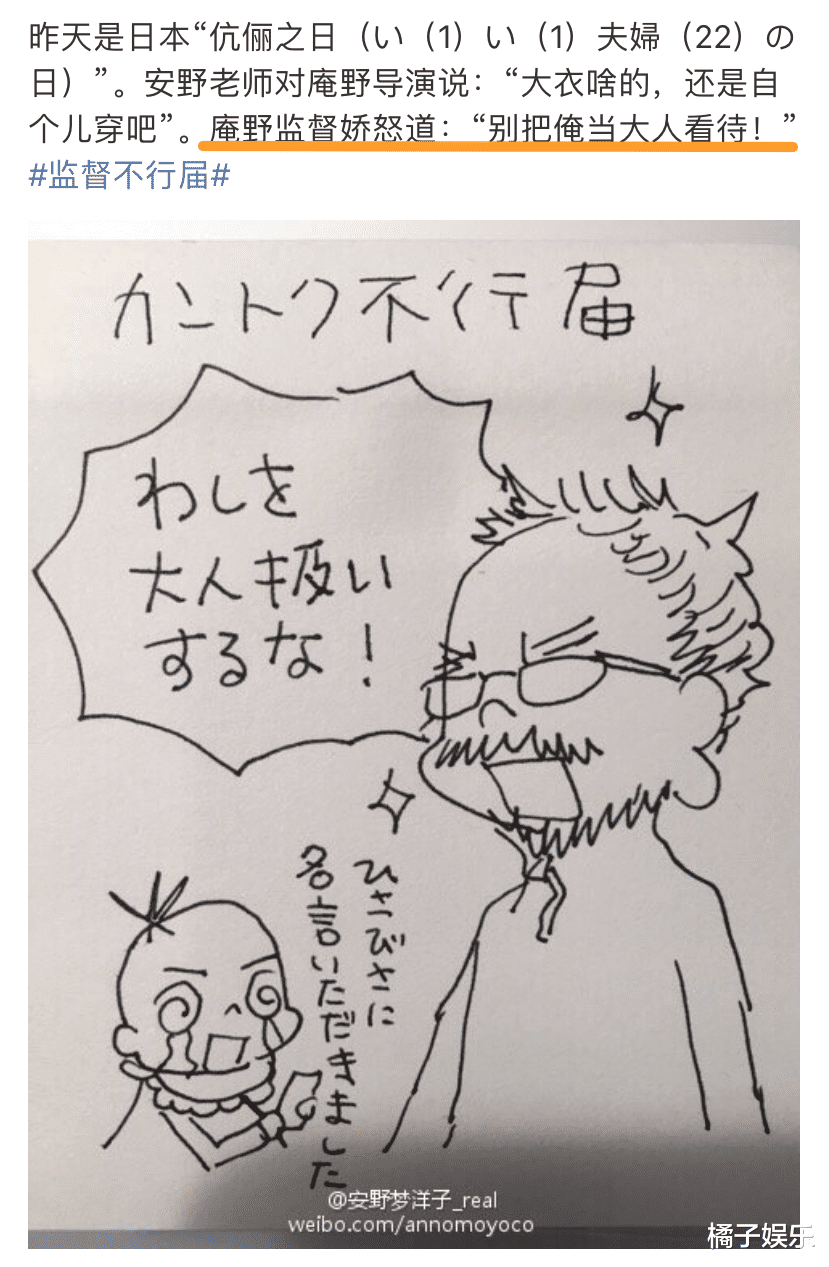 昨天是日本“伉俪之日（い（1）い（1）夫婦（22）の
日）”。安野老师对庵野导演说：“大衣啥的，还是自
个儿穿吧”。庵野监督娇怒道：“别把俺当大人看待！”
#监督不行届#
カントク不行届
わしを
大人扱い
するな！
ひさびさに
名言いただきました
@安野梦洋子_real
weibo.com/annomoyoco
橘子娱乐